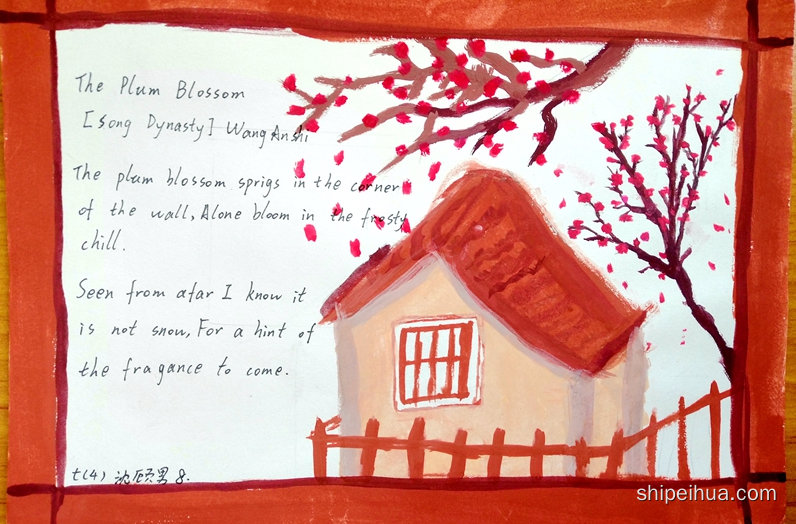 The Plum Blossom
[Song Dynasty] Wang Anshi
The plum blossom sprigs in the corner
of the wall, Alone bloom in the frosty
chill.
Seen from afar I know it
is not snow, For a hint of
the fragance to come.
t(4) 顾男 8.
shipeihua.com